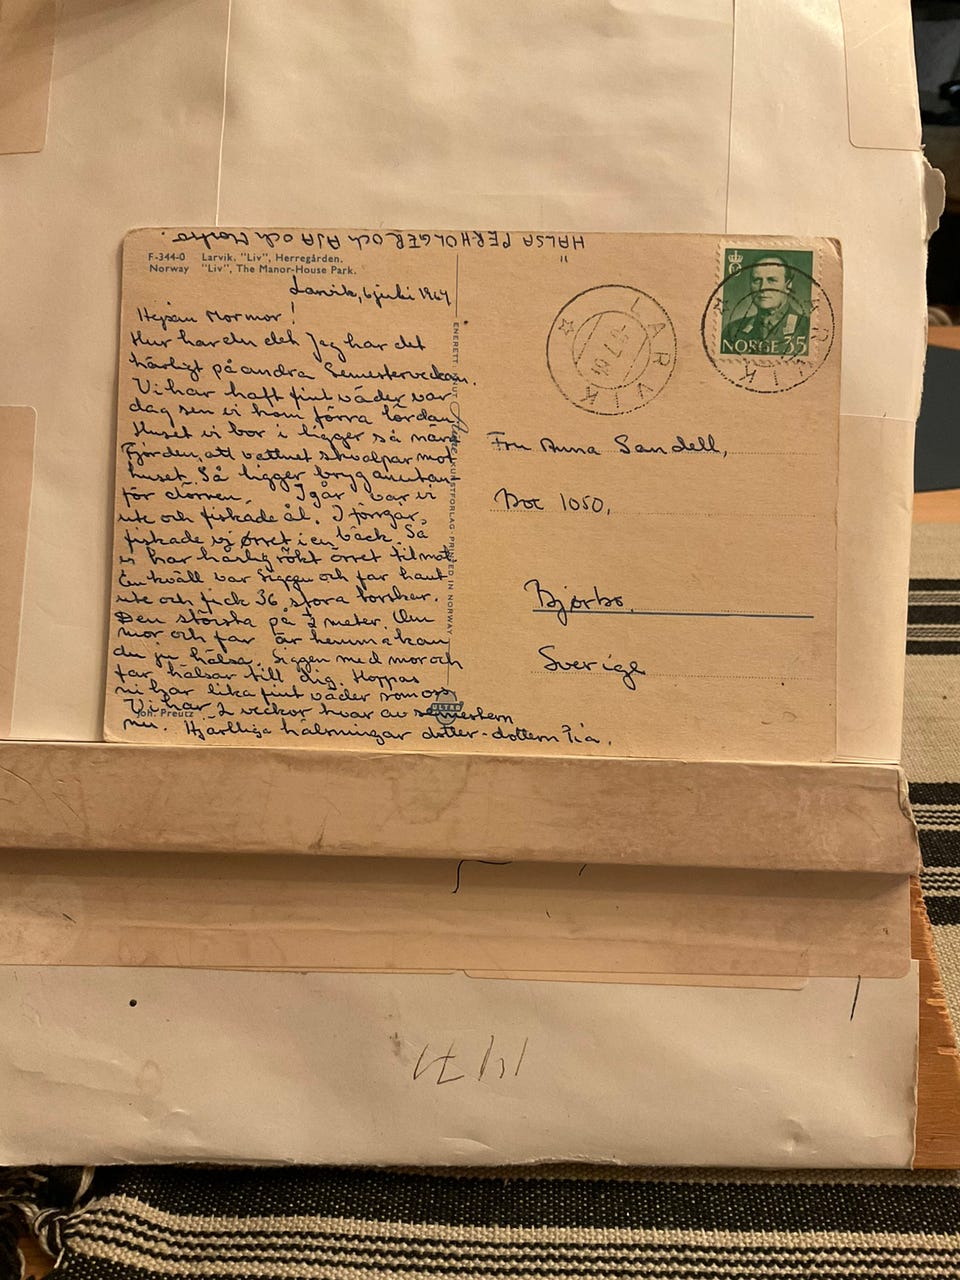 HÄLSA PERHOLGER och AJA och
F-344-0 Larvik. "Liv", Herregården.
Norway "Liv", The Manor-House Park.
Larvik, 6 juli 1964
Hejsan Mormor!
Hur har du det Jag har det
härligt på andra Semesterveckan.
Vi har haft fint väder var
dag sen vi kom förra lördan
Huset vi bor i ligger så nära
Fjorden, att vattnet skvalpar mot
huset. Så ligger bryggan utan
för dörren. Igår var vi
ute och fiskade ål. I förrgår,
fiskade vi ørret i en bäck. Så
vi har härlig rökt örret til mat
En kväll var Siggen och far haut
ute och fick 36 stora torskar.
Den största på ½ meter. Om
mor och far är hemma kan
du ju hälsa. Siggen med mor och
far, hälsar till dig. Hoppas
ni har lika fint väder som oss
Vi har 2 veckor kvar av semestern
nu. Hjärtliga hälsningar dotter-dottern Pia.
Joh. Preutz
ENERETT: KNUT Aune KUNSTFORLAG · PRINTED IN NORWAY
ULTRA
LARVIK
-9.7.64
NORGE 35
LARVIK
Fru Anna Sandell,
Box 1050,
Björbo.
Sverige